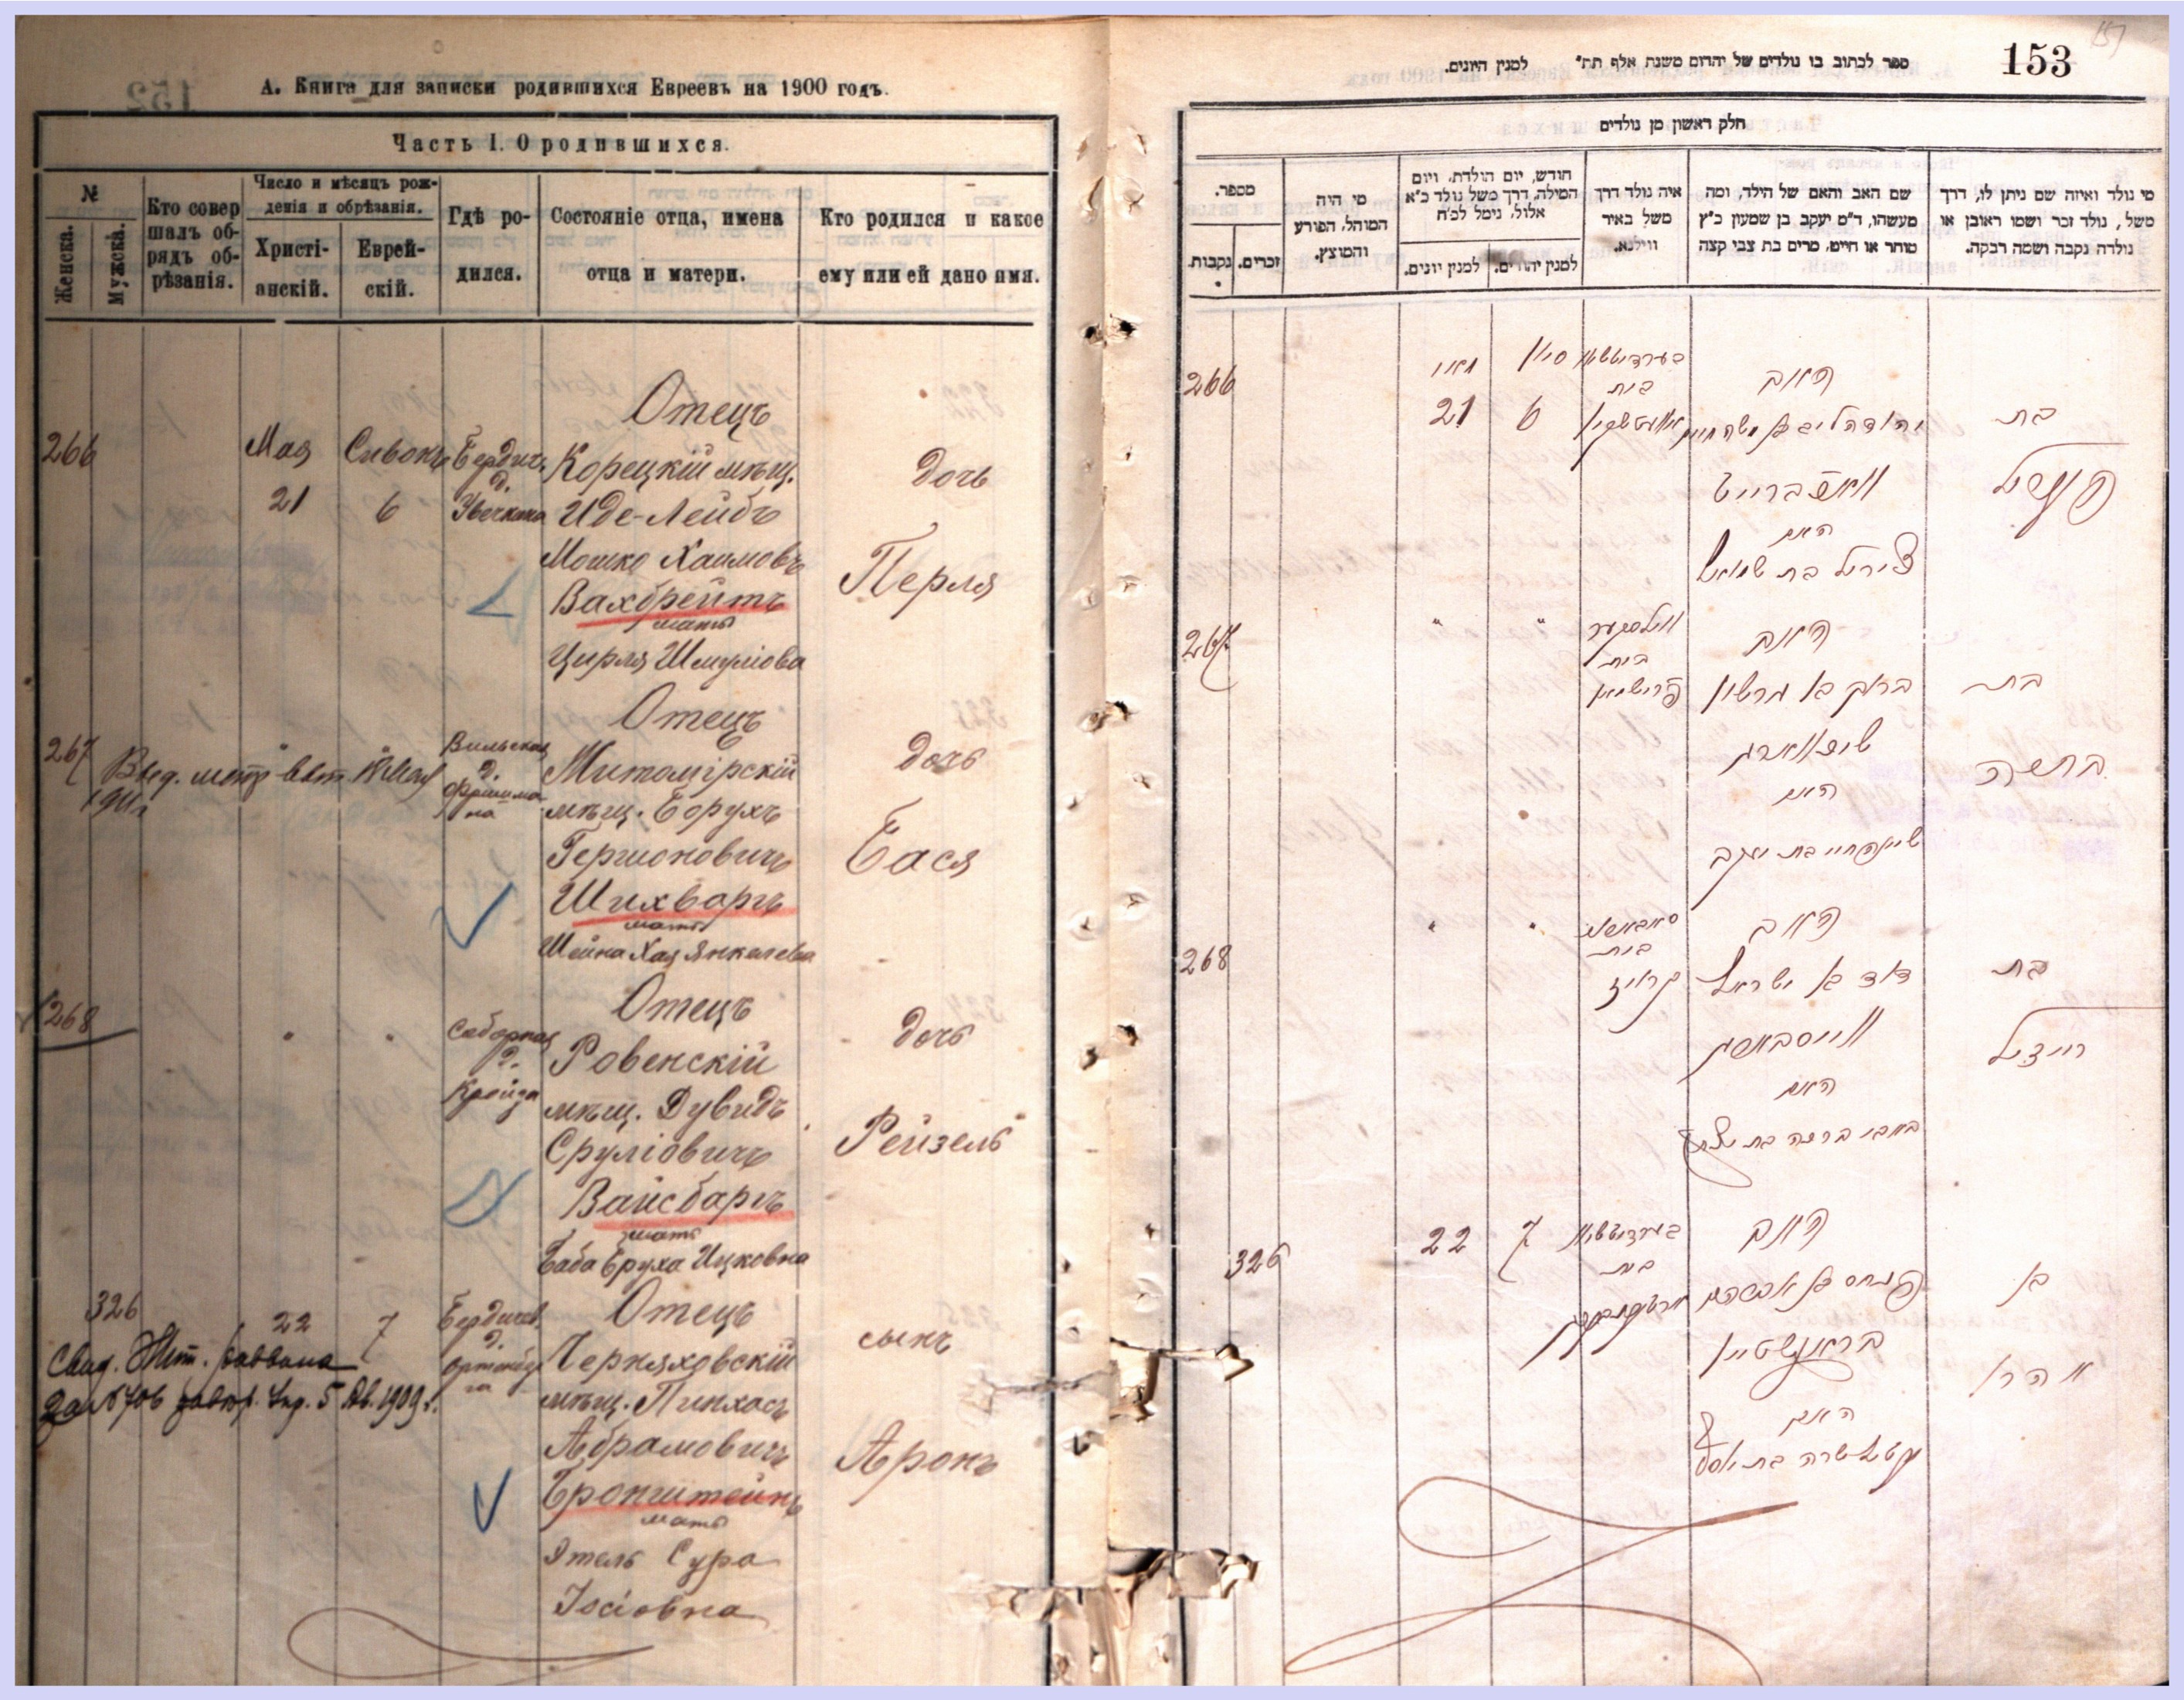 А. Книга для записки родившихся Евреевъ на 1900 годъ.
Часть I. О родившихся.
№
Женска.
Мужска.
Кто совер
шалъ об-
рядъ об-
рѣзанія.
Число и мѣсяцъ рож-
денія и обрѣзанія.
Христі-
анскій.
Еврей-
скій.
Гдѣ ро-
дился.
Состояніе отца, имена
отца и матери.
Кто родился и какое
ему или ей дано имя.
266
Мая
21
Сивонъ
6
Бердич.
д.
Отецъ
Корецкій мѣщ.
Иде-Лейбъ
Мошко Хаимовъ
Вахбрейтъ
мать
Цирля Шмуліова
дочь
Перля
267
1911г
Вильская
д.
Фришма
на
Отецъ
Житомірскій
мѣщ. Борухъ
Гершоновичъ
Шихваргъ
мать
Шейна Хая Янкелева
дочь
Бася
268
"
"
Соборная
д.
Кройза
Отецъ
Ровенскій
мѣщ. Дувидъ
Сруліовичъ
Вайсбаргъ
мать
Баба Бруха Ицковна
дочь
Рейзель
326
22
7
Свид. Жит. раввина
за № 706 5 1909 г.
Бердичев.
д.
Ортенбер
га
Отецъ
Черняховскій
мѣщ. Пинхасъ
Абрамовичъ
Бронштейнъ
мать
Этель Сура
Іосіовна
сынъ
Аронъ
153
ספר לכתוב בו נולדים של יהדום משנת אלף תת״ למנין היונים.
חלק ראשון מן נולדים
מי נולד ואיזה שם ניתן לו, דרך
משל, נולד זכר ושמו ראובן או
נולדה נקבה ושמה רבקה.
שם האב והאם של הילד, ומה
מעשהו, ד״מ יעקב בן שמעון כ״ץ
סוחר או חייט, מרים בת צבי קצה
איה נולד דרך
משל באיר
ווילנא.
חודש, יום הולדת, ויום
המילה, דרך משל נולד כ״א
אלול, נימל לכ״ח
למנין יהודים.
למנין יונים.
מי היה
המוהל, הפורע
והמוצץ.
מספר.
זכרים.
נקבות.
266
מאי
21
סיון
6
בערדיטשוב
בית
האב
יהודה ליב בן משה חיים
וואחברייט
האם
צירל בת שמואל
בת
פערל
267
"
"
ווילסקער
בית
פרישמאן
האב
ברוך בן גרשון
שיכווארג
האם
שיינה חיי בת יעקב
בת
באסיה
268
"
"
בית
קרויז
האב
דוד בן ישראל
ווייסבארג
האם
באבי ברכה בת יצחק
בת
רייזל
326
22
7
בערדיטשוב
בית
האב
פנחס בן אברהם
בראנשטיין
האם
עטל שרה בת יוסף
בן
אהרן